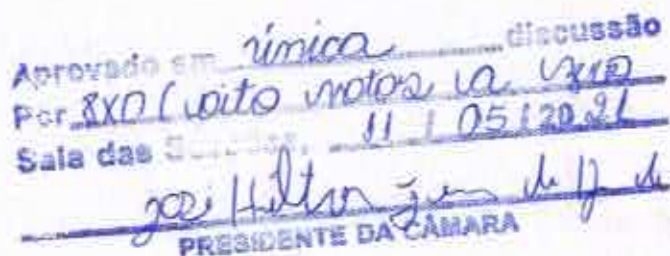 Aprovado em única discussão
Por 8X0 (oito votos a zero
Sala das Sessões, 11 / 05 / 2021
José Hilton
PRESIDENTE DA CÂMARA